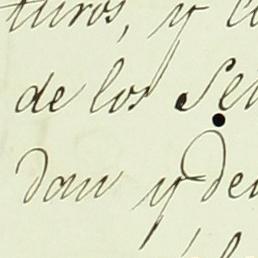 turos, y
de los
dan y de